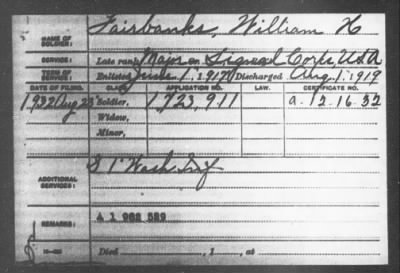 NAME OF SOLDIER: Fairbanks, William H
SERVICE: Late rank, Major Signal Corps, USA
TERM OF SERVICE: Enlisted June 1, 1917 Discharged Aug. 1, 1919
DATE OF FILING. CLASS. APPLICATION NO. LAW. CERTIFICATE NO.
1932 Aug 23 Soldier, 1,723,911 a-12-16-32
Widow,
Minor,
ADDITIONAL SERVICES: S 1' Wash Inf
REMARKS: A 1 968 589
Died , 1 , at